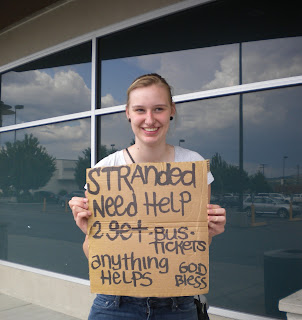 STRANded
Need Help
2 get BUS-
TICKETS
anything GOD
HELPS BLESS